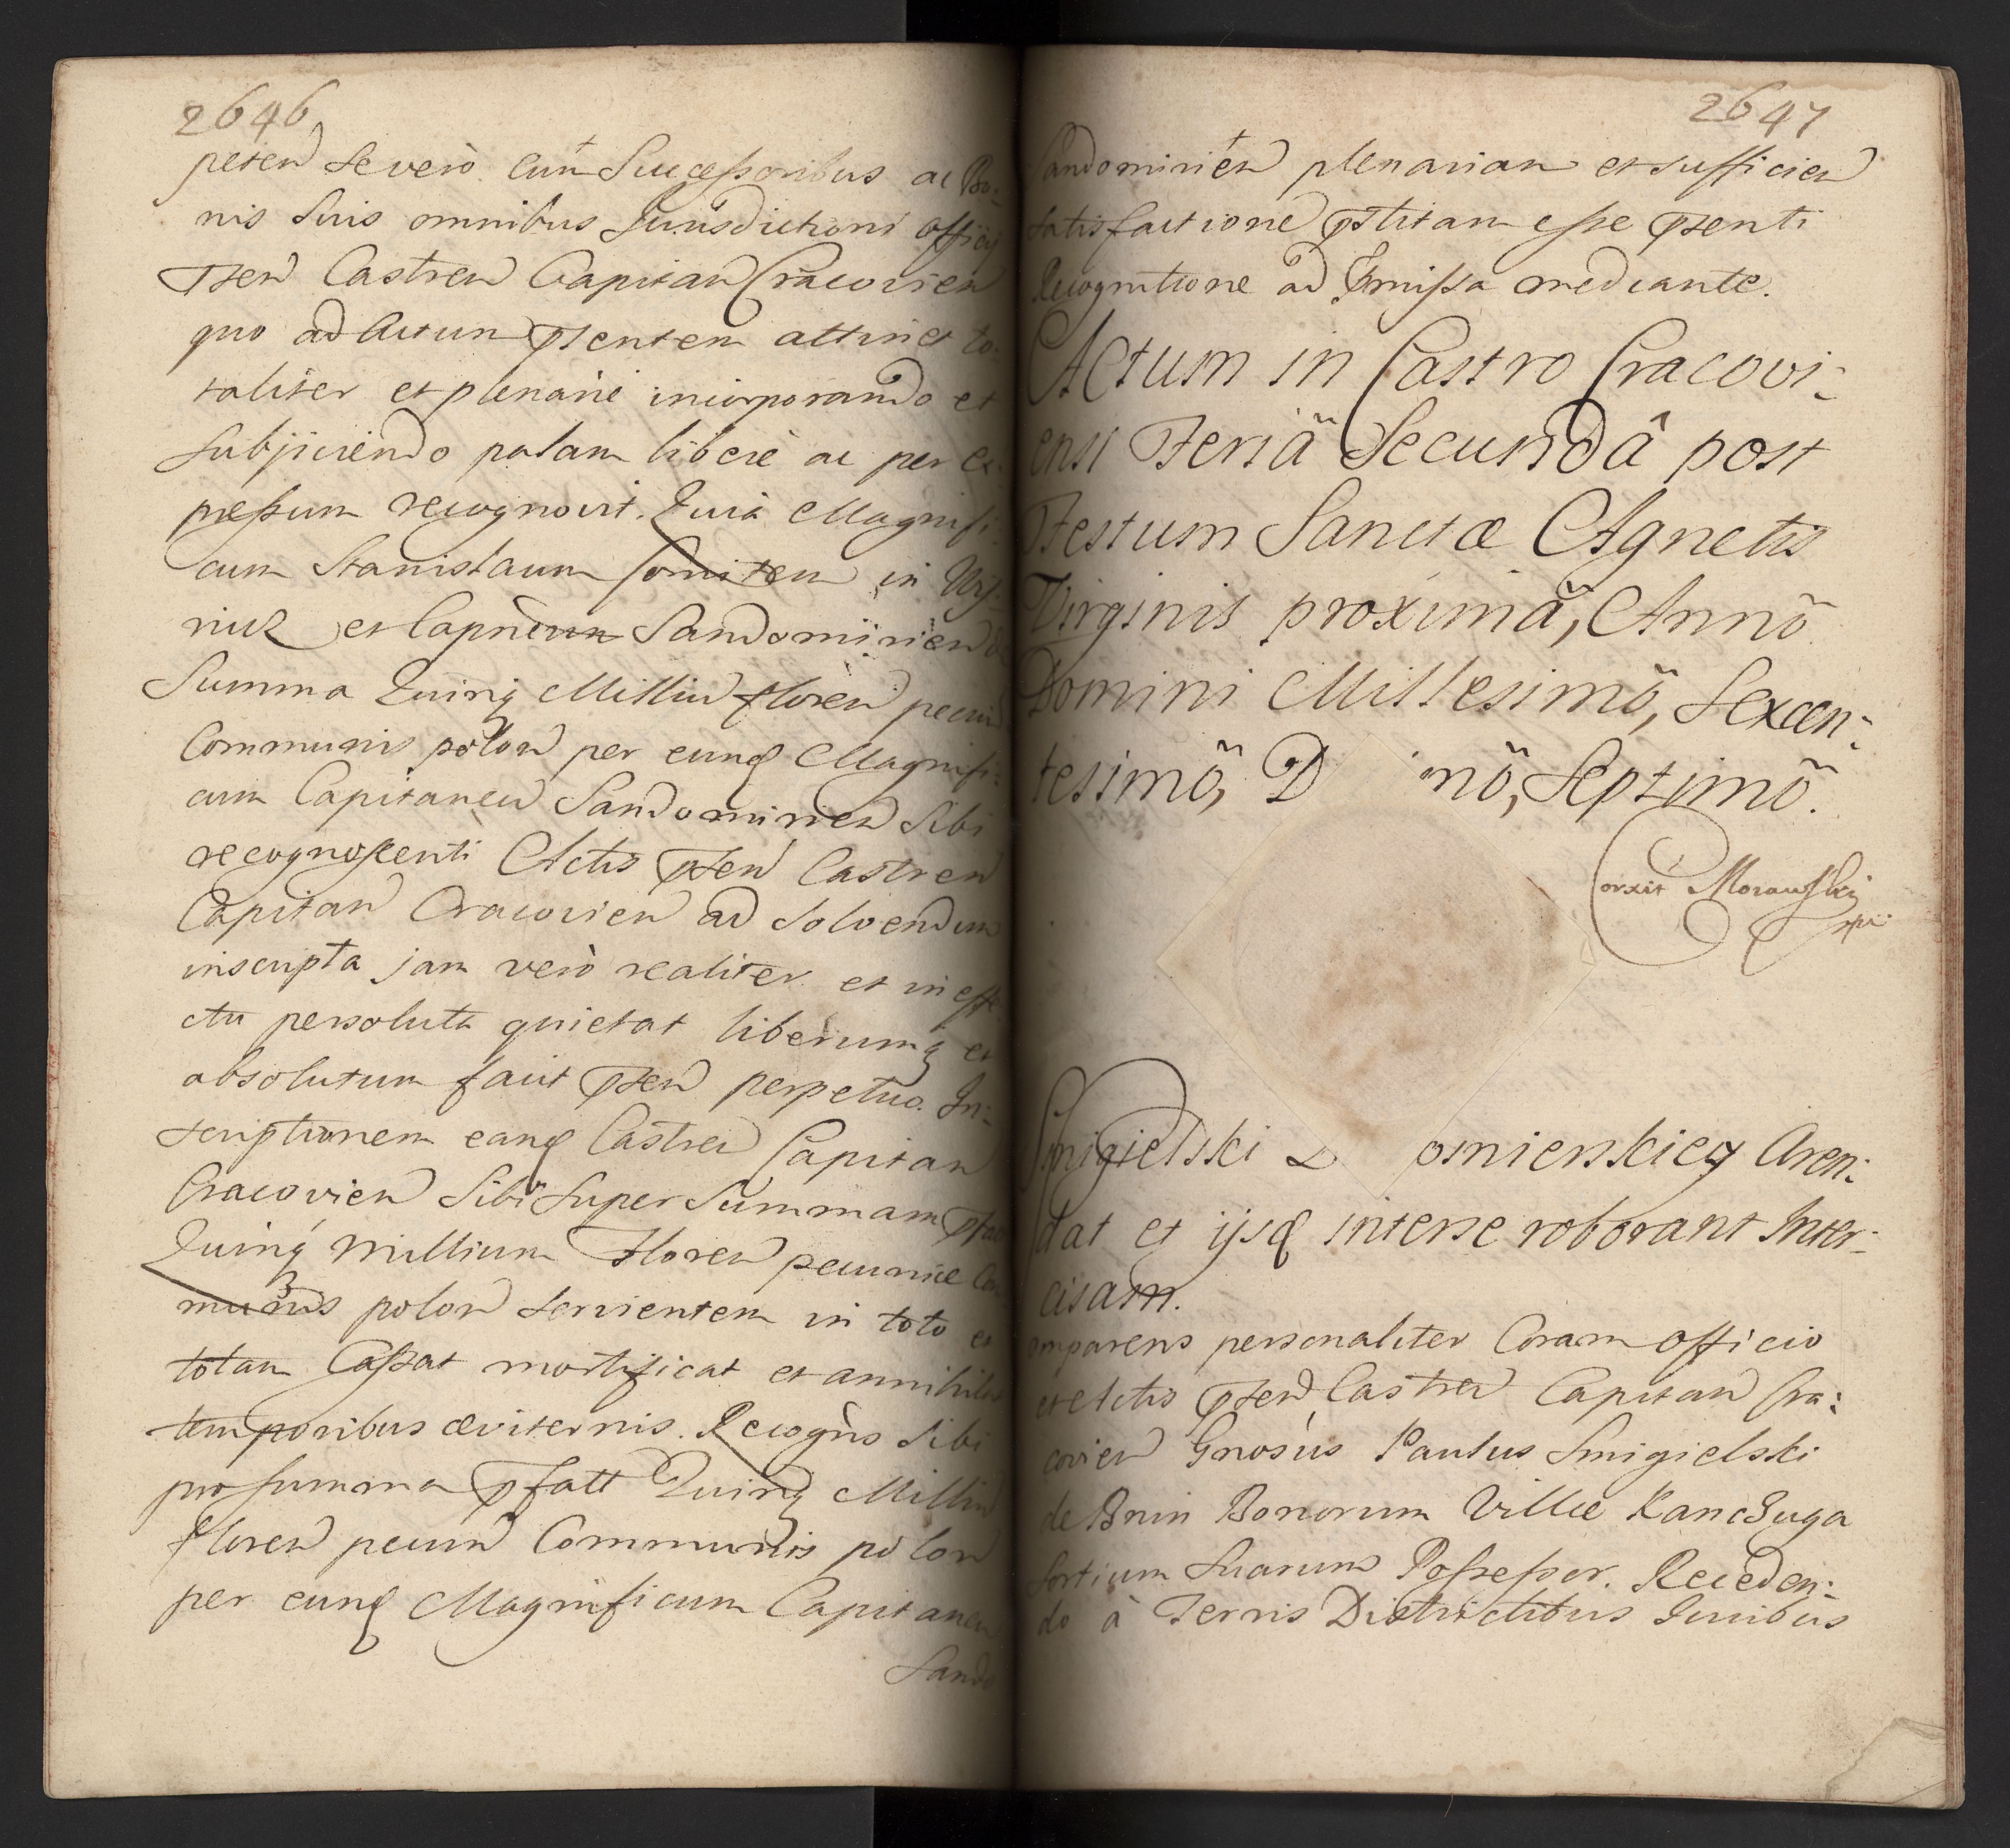 2646
peten se vero cum Successoribus ac Bo-
nis suis omnibus Jurisdictioni officij
pšen Castren Capitan Cracovien
quo ad Actum pšentem attinet to-
taliter et plenarie incorporando et
subjiciendo palam libere ac per ex-
pressum recognovit. Quia Magnifi-
cum Stanislaum Comitem in Wis-
nicz et Capneum Sandomirien de
Summa Quinq Milliu floren pecun
Communis polon per eunq Magnifi-
cum Capitaneu Sandomirien sibi
recognoscenti Actis pšen Castren
Capitan Cracovien ad solvendum
inscripta jam vero realiter et in effe
ctu persoluta quietat liberumq et
absolutum facit pšen perpetuo. In-
scriptionem eanq Castren Capitan
Cracovien Sibi super Summam
Quinq Millium Floren pecuniæ Com
munis polon servientem in toto et
totam Cassat mortificat et annihilat
temporibus æviternis. Recogns sibi
pro summa pfatt Quinq Milliu
floren pecun Communis polon
per eunq Magnificum Capitaneu
Sando
2647
Sandomirien plenariam et sufficien
satisfactione pstitam esse pšenti
Recognitione ad pmissa mediante.
Actum in Castro Cracovi-
ensi Feriâ Secundâ post
Festum Sanctæ Agnetis
Virginis proximâ, Annô
Domini Millesimô, Sexcen-
tesimô, D mô, Septimô.
Corxit Morawski
mpr
Smigielski D omienskiey Aren-
dat et ijsq inter se roborant Inter-
cisam.
omparens personaliter Coram officio
et Actis pšen Castren Capitan Cra-
covien Gnosus Paulus Smigielski
de Bnin Bonorum Villæ Kanczuga
sortium suarum Possessor. Receden-
do à Terris Districtibus Juribus